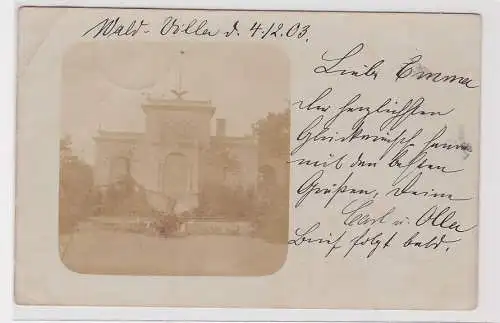 Wald-Villa d. 4.12.03.
Liebe Emma
Die herzlichsten
Glückwünsche
mit den besten
Grüßen, Deine
Carl u. Olla
Brief folgt bald.